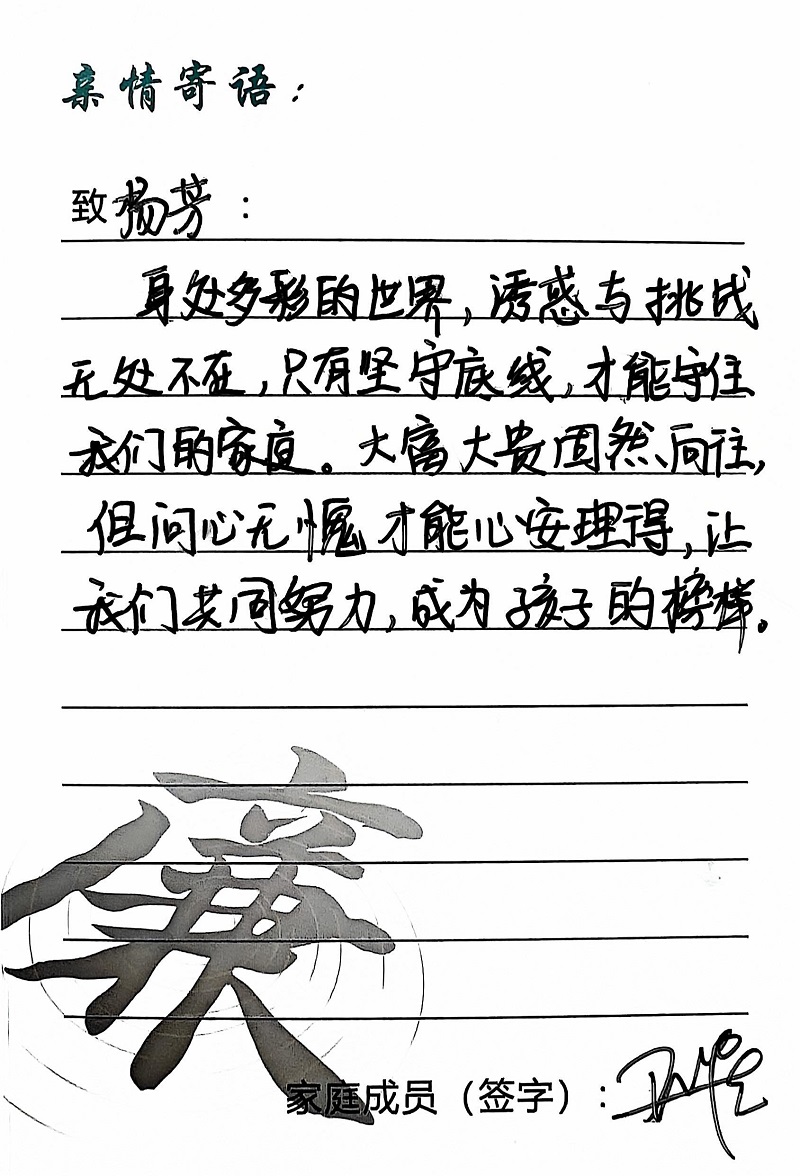 亲情寄语：
致杨芳：
身处多彩的世界，诱惑与挑战
无处不在，只有坚守底线，才能守住
我们的家庭。大富大贵固然向往，
但问心无愧才能心安理得，让
我们共同努力，成为孩子的榜样。
廉
家庭成员（签字）：